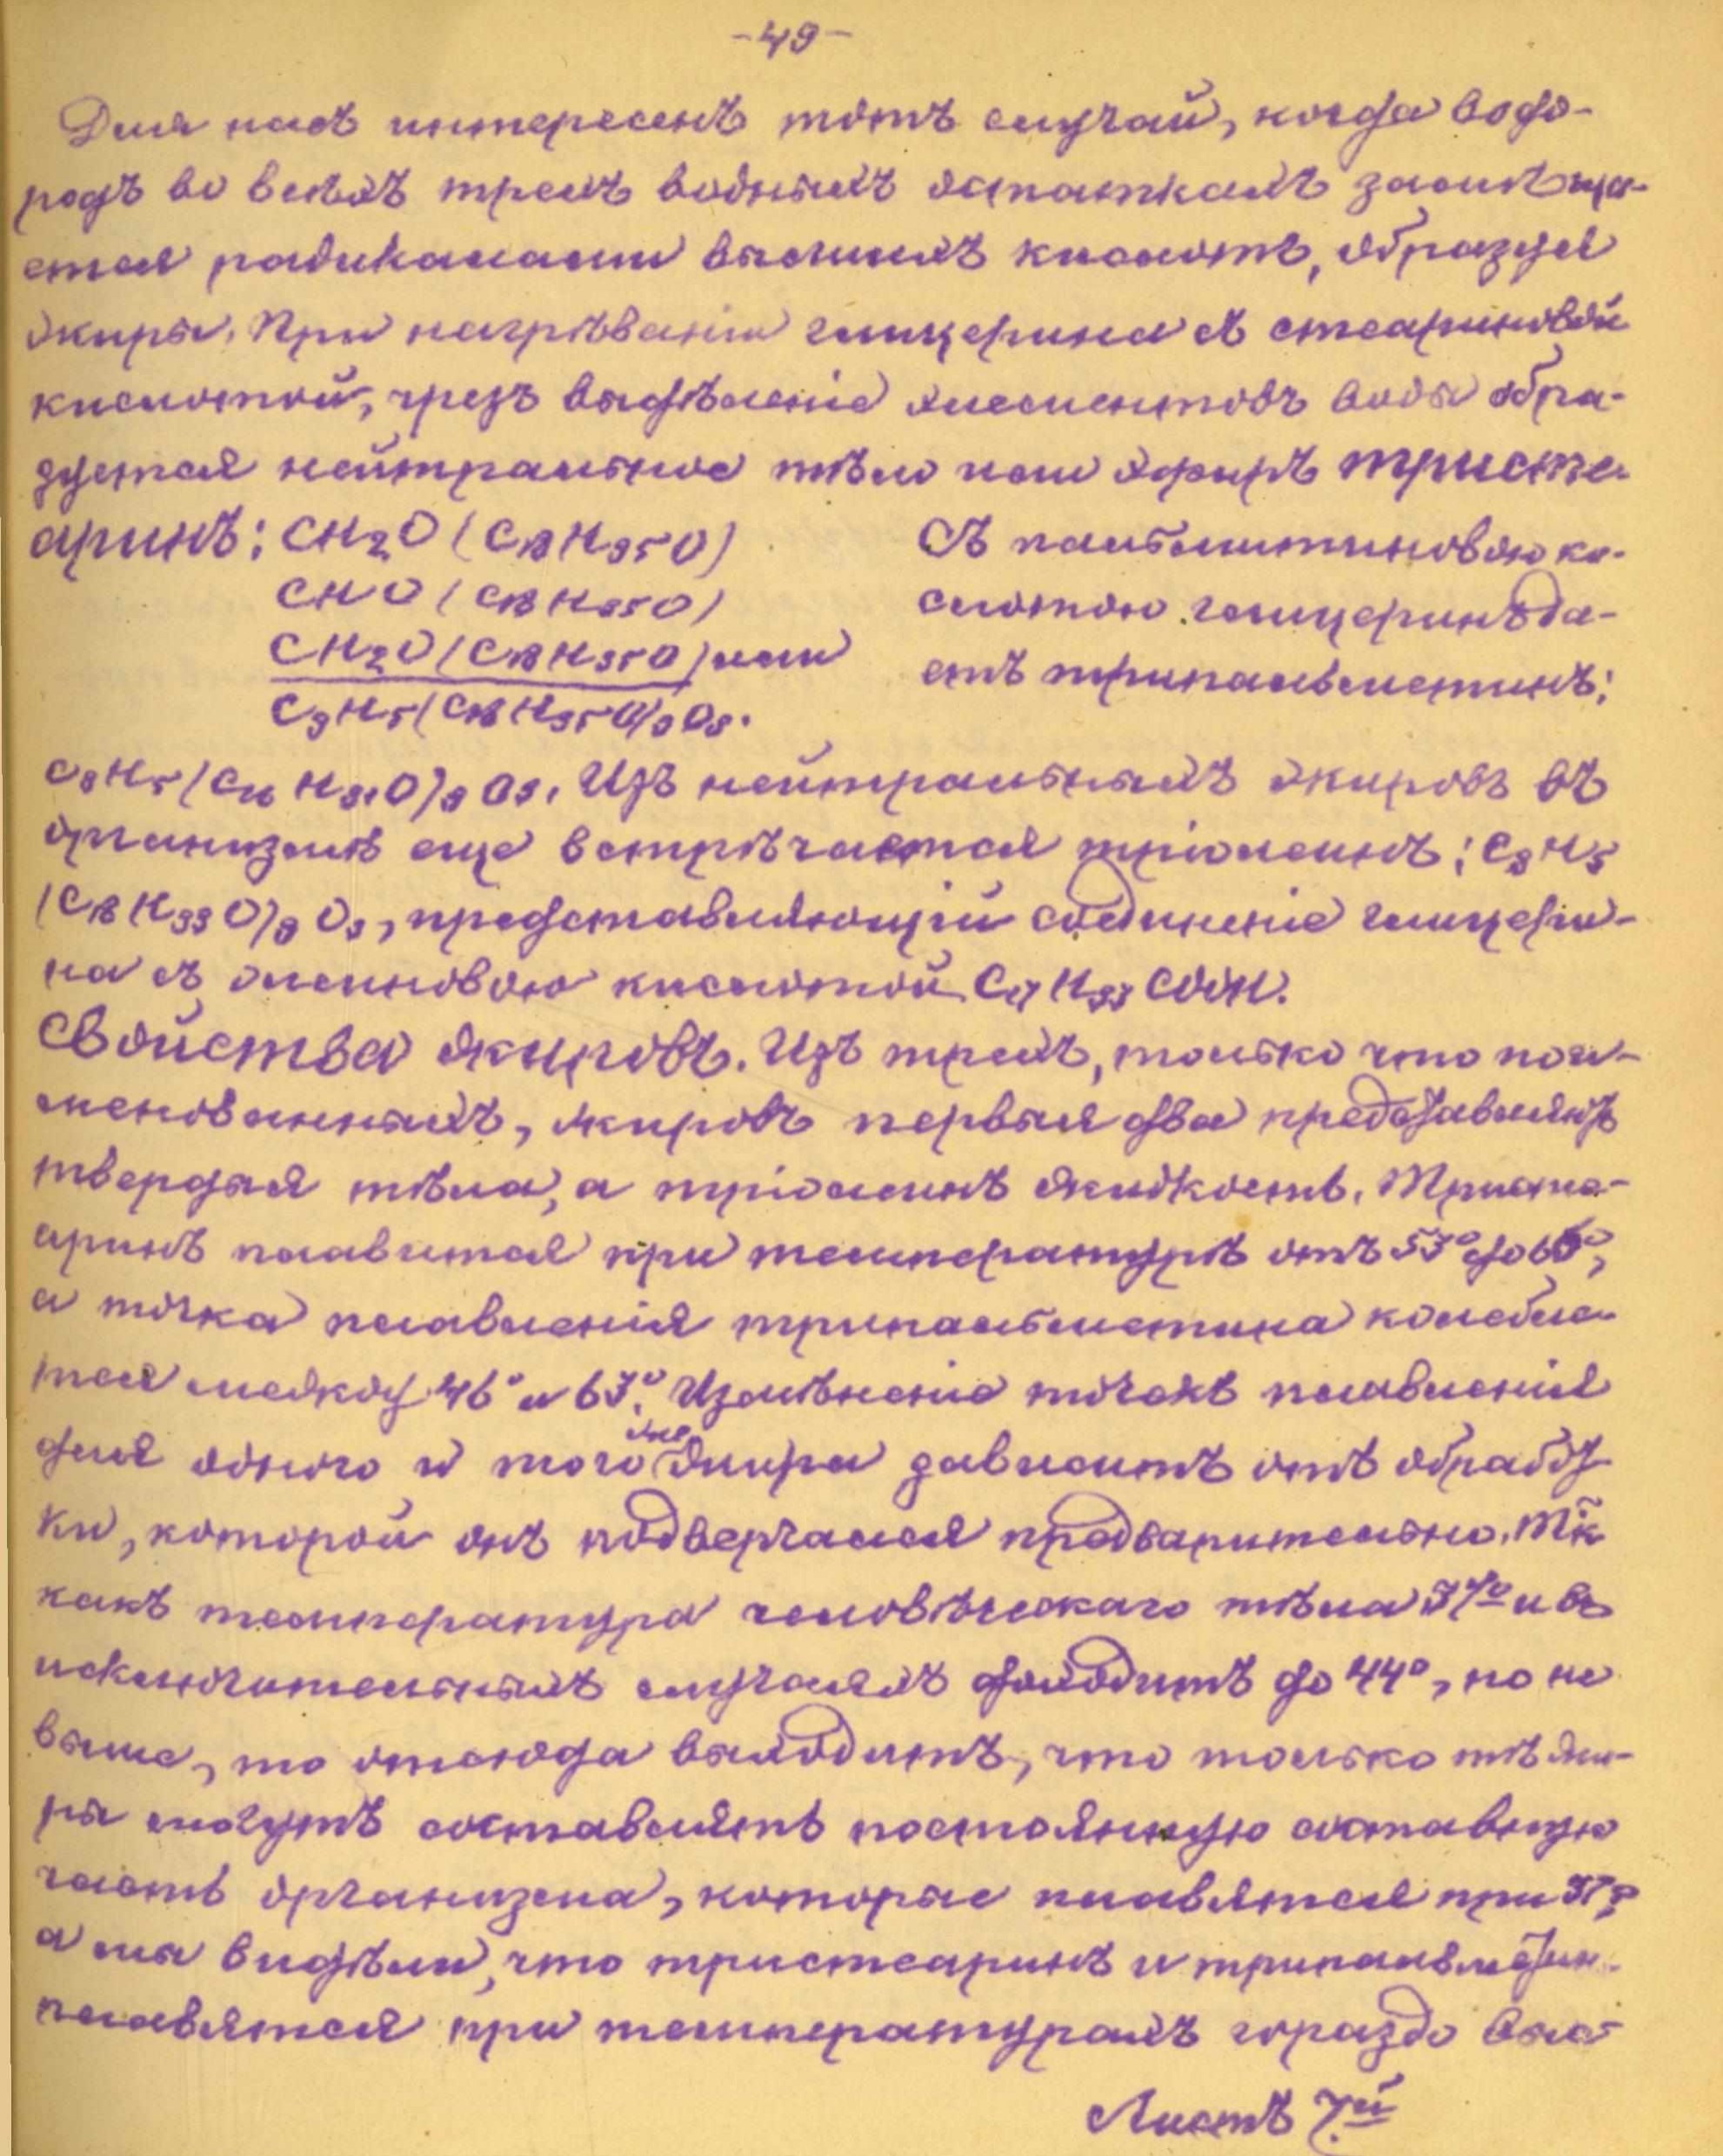 -49-
Для насъ интересенъ тотъ случай, когда водо-
родъ во всѣхъ трехъ водныхъ остаткахъ замѣща-
ется радикалами высшихъ кислотъ, образуя
жиры. При нагрѣваніи глицерина съ стеариновой
кислотой, чрезъ выдѣленіе элементовъ воды обра-
зуется нейтральное тѣло или эфиръ тристе-
аринъ: CH2O (C18H35O)
CHO (C18H35O)
CH2O (C18H35O) или
C3H5 (C18H35O)3O3.
Съ пальмитиновою ки-
слотою глицеринъ да-
етъ трипальметинъ:
C3H5 (C16H31O)3O3. Изъ нейтральныхъ жировъ въ
организмѣ еще встрѣчается тріолеинъ: C3H5
(C18H33O)3O3, представляющій соединеніе глицери-
на съ олеиновою кислотой C17H33COOH.
Свойства жировъ. Изъ трехъ, только что пои-
менованныхъ, жировъ первыя два представляютъ
твердыя тѣла, а тріолеинъ жидкость. Тристе-
аринъ плавится при температурѣ отъ 53° до 66°,
а точка плавленія трипальметина колебле-
тся между 46° и 63°. Измѣненіе точекъ плавленія
для одного и того же жира зависитъ отъ обработ-
ки, которой онъ подвергался предварительно. Тк
какъ температура человѣческаго тѣла 37° и въ
исключительныхъ случаяхъ доходитъ до 44°, но не
выше, то отсюда выходитъ, что только тѣ жи-
ры могутъ составлять постоянную составную
часть организма, которые плавятся при 37°,
а мы видѣли, что тристеаринъ и трипальметин
плавятся при температурахъ гораздо выс-
Листъ 7й